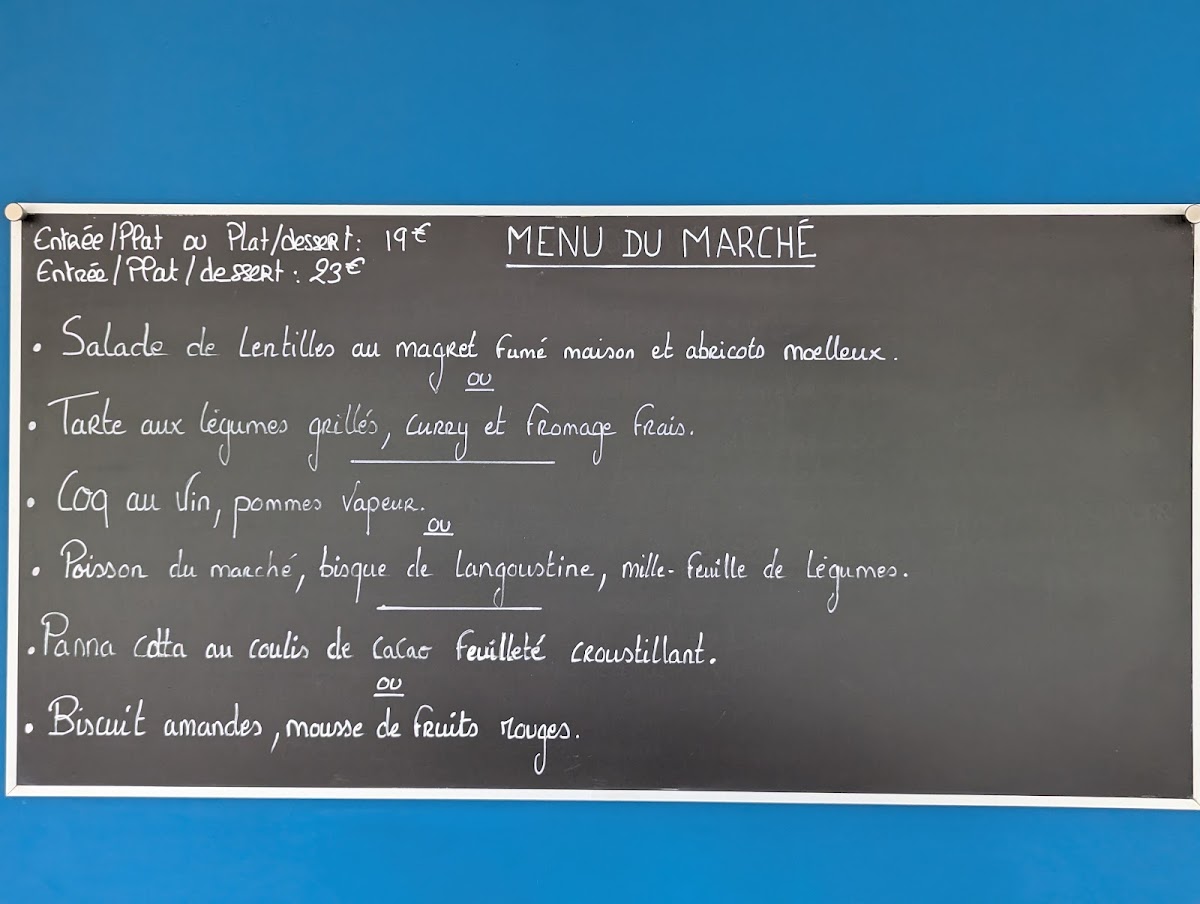 Entrée/Plat ou Plat/dessert : 19€
MENU DU MARCHÉ
Entrée/Plat/dessert : 23€
• Salade de lentilles au magret fumé maison et abricots moelleux.
ou
• Tarte aux légumes grillés, curry et fromage frais.
• Coq au Vin, pommes vapeur.
ou
• Poisson du marché, bisque de langoustine, mille-feuille de légumes.
• Panna cotta au coulis de cacao feuilleté croustillant.
ou
• Biscuit amandes, mousse de fruits rouges.